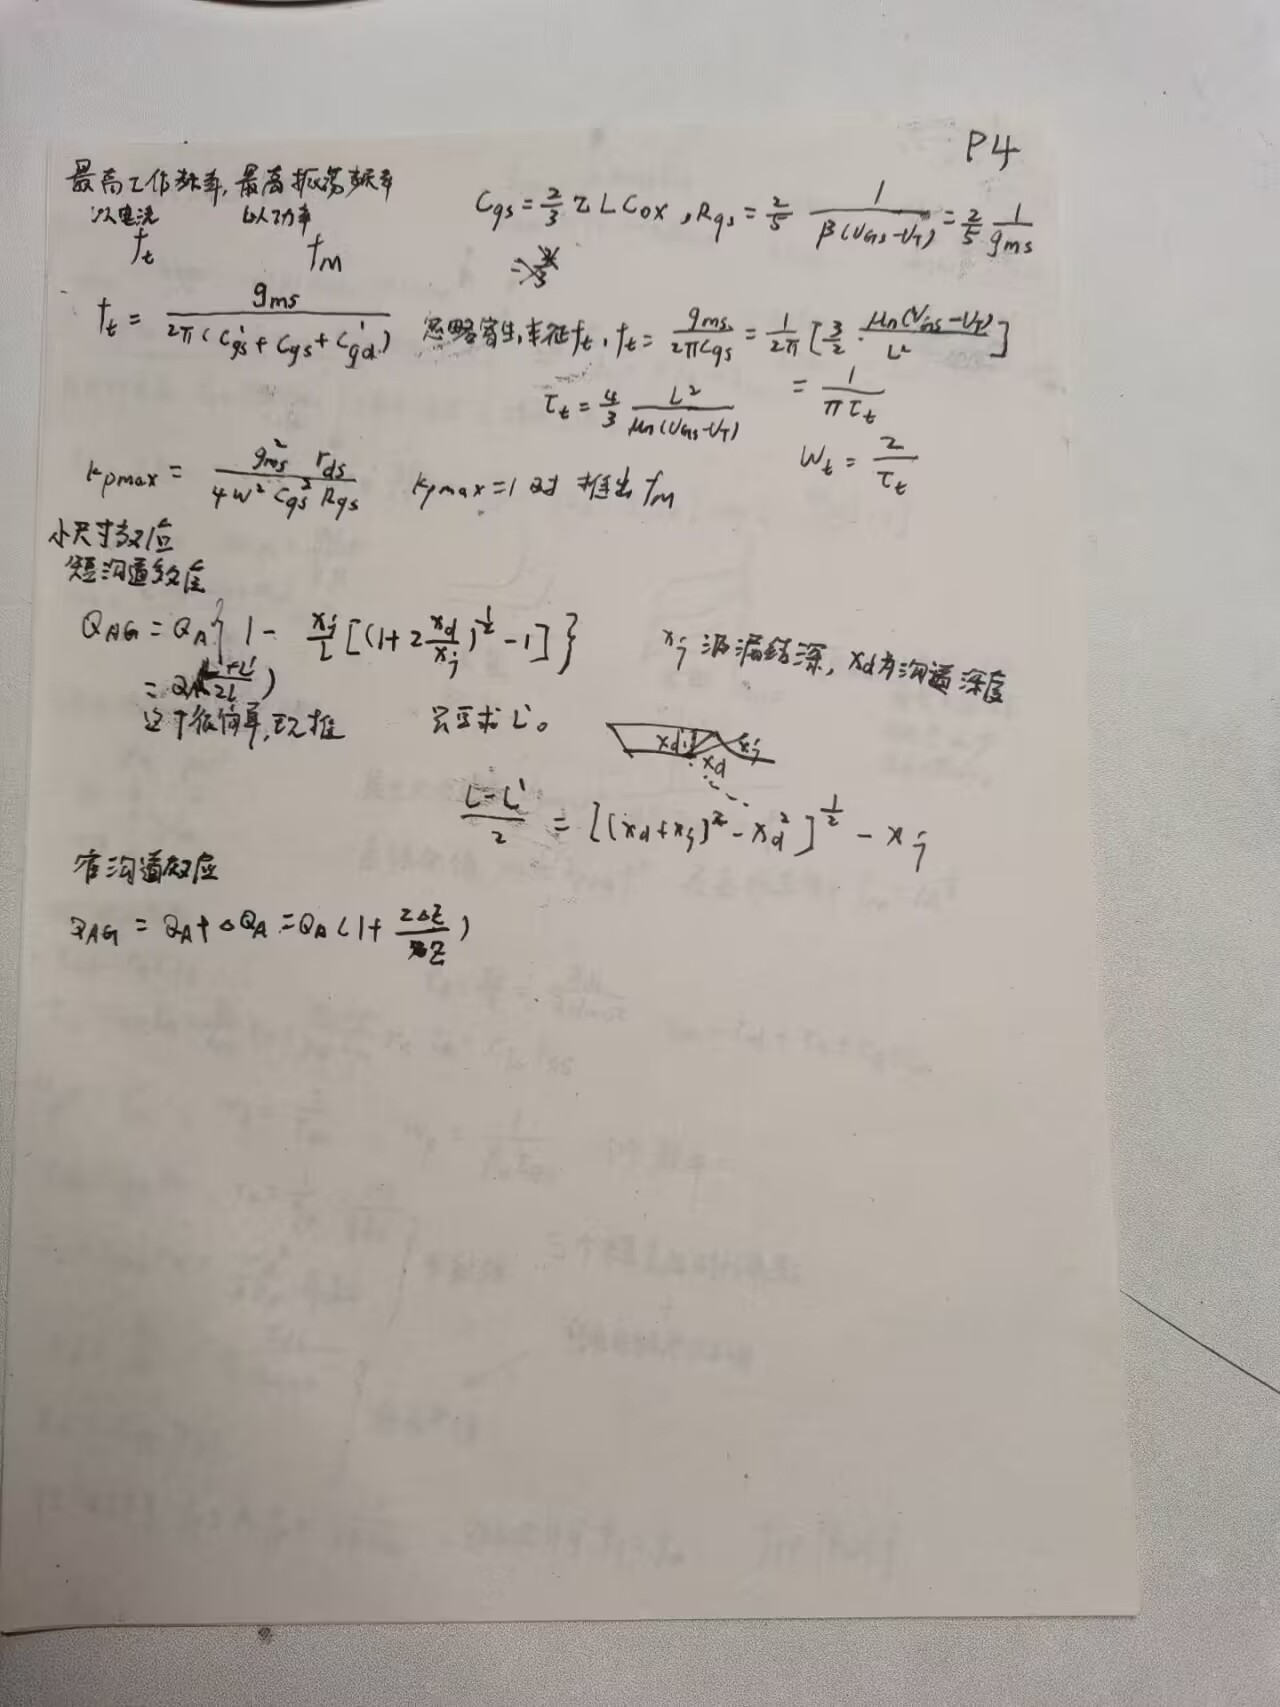 P4
最高工作频率,最高振荡频率
以电流 以功率
f_t f_M
C_gs = 2/3 Z L C_ox , R_gs = 2/5 1/(β(V_GS-V_T)) = 2/5 1/g_ms
f_t = g_ms/(2π(C'_gs + C_gs + C'_gd)) 忽略寄生,本征f_t , f_t = g_ms/(2πC_gs) = 1/2π [3/2 · μ_n(V_GS-V_T)/L²]
τ_t = 4/3 L²/(μ_n(V_GS-V_T)) = 1/(πτ_t)
W_t = 2/τ_t
K_pmax = g_ms² r_ds/(4w² C_gs² R_gs) K_pmax=1时 推出 f_M
小尺寸效应
短沟道效应
Q_AG = Q_A{1 - x_j/L [(1+2 x_d/x_j)^(1/2) -1]} x_j 源漏结深, x_d为沟道深度
= Q_A(L+L'/2L)
这个很简单,现推 只要求L'。
x_d x_j
x_d
(L-L')/2 = [(x_d+x_j)² - x_d²]^(1/2) - x_j
窄沟道效应
Q_AG = Q_A+ΔQ_A = Q_A(1+ 2ΔZ/Z)